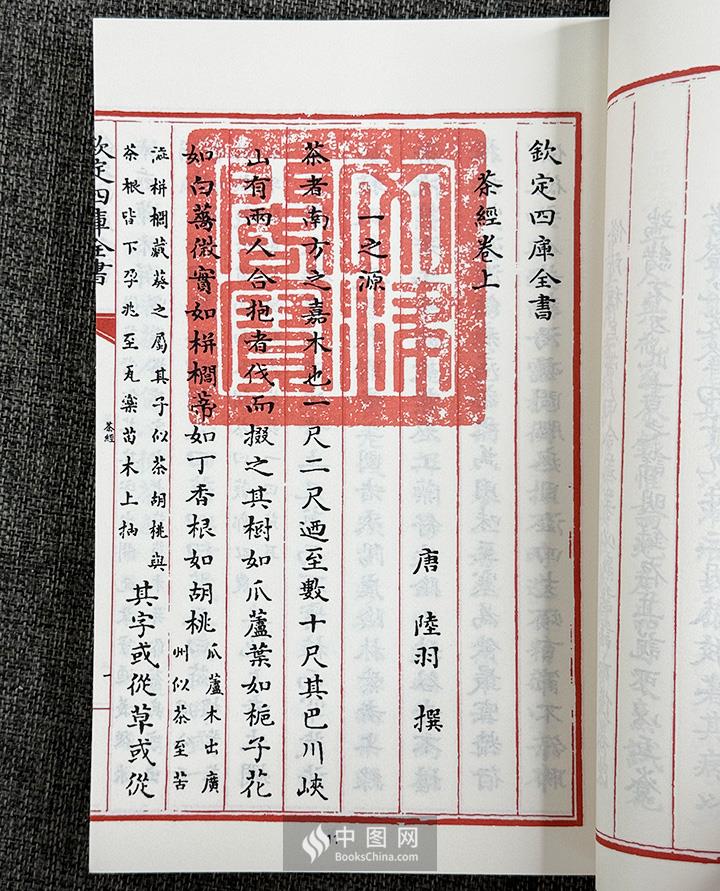 欽定四庫全書
茶經卷上
唐 陸羽 撰
一之源
茶者南方之嘉木也一尺二尺迺至數十尺其巴川峽
山有兩人合抱者伐而掇之其樹如瓜蘆葉如梔子花
如白薔薇實如栟櫚蒂如丁香根如胡桃
瓜蘆木出廣
州似茶至苦
澁栟櫚蒲葵之屬其子似茶胡桃與
茶根皆下孕兆至瓦礫苗木上抽
其字或從草或從
欽定四庫全書
茶經
一
文津閣寶
中图网
BooksChina.com